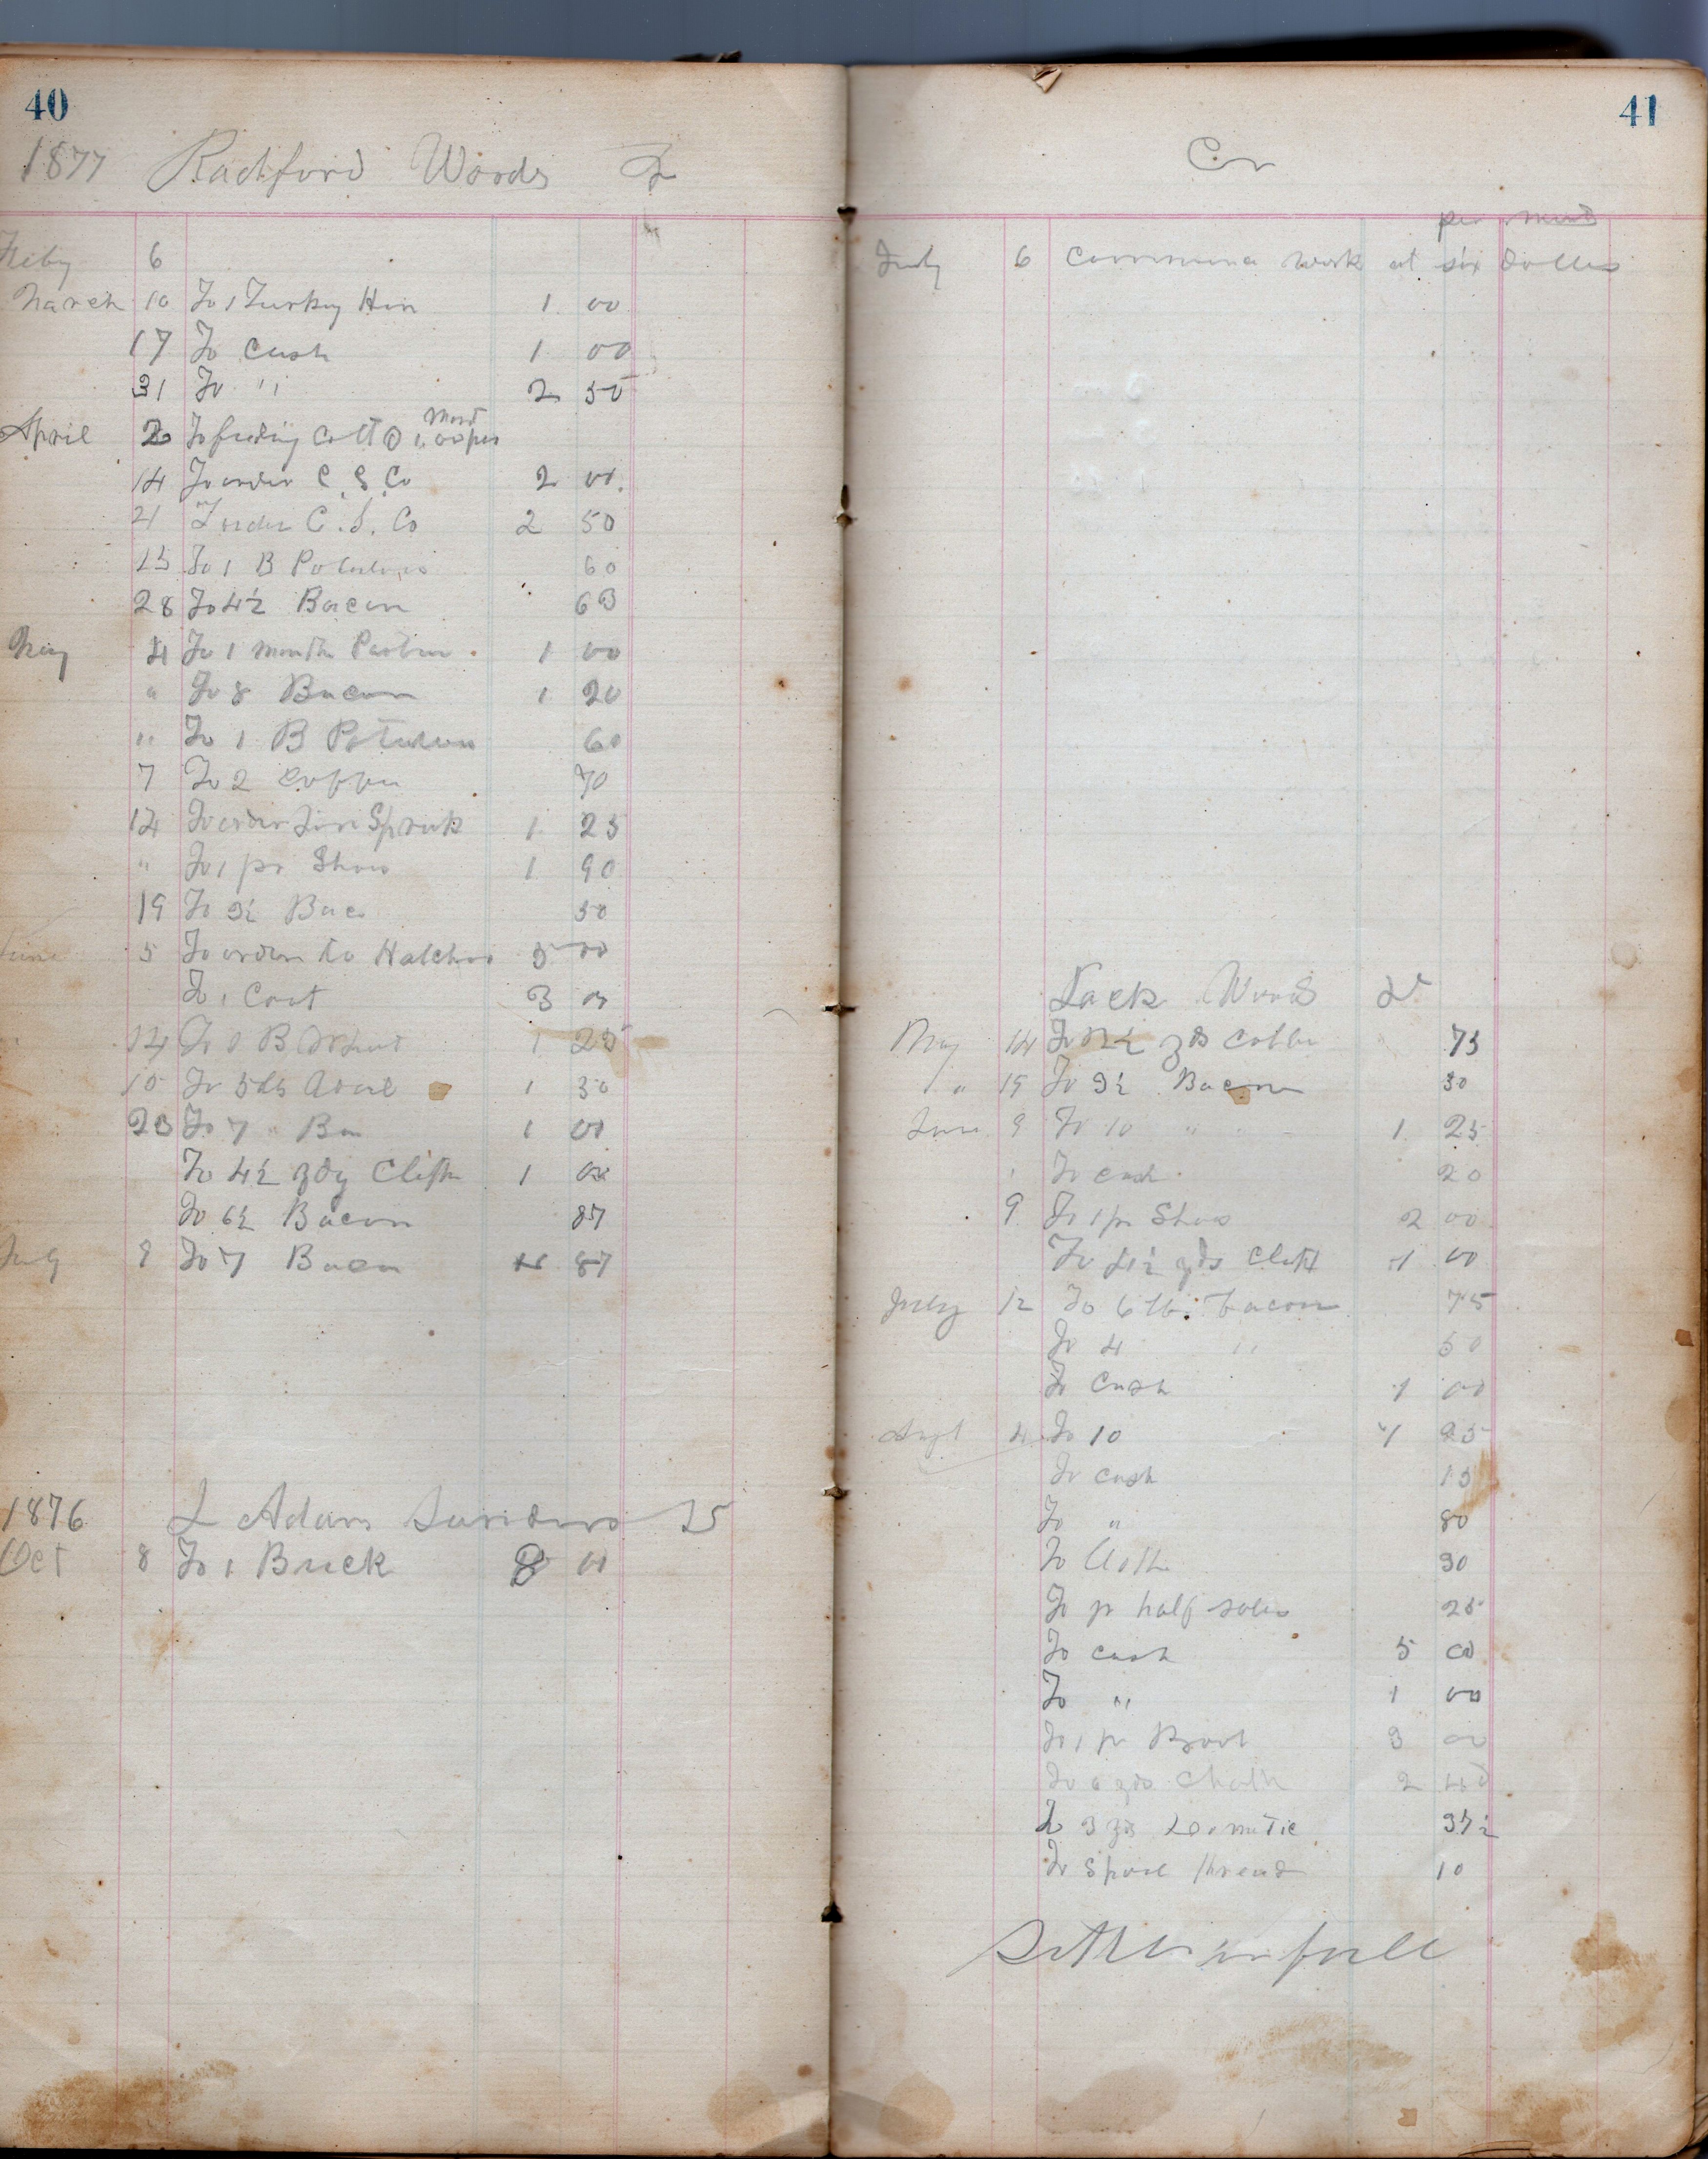 40
1877 Radford Woods Dr
Feby 6
March 10 To 1 Turkey Hin 1 00
17 To Cash 1 00
31 To " 2 50
April 2 To feeding Colt @ 1.00 per Mont
14 To order C. S. Co 2 00
21 To order C. S. Co 2 50
To 1 B Potatoes 60
28 To 4½ Bacon 63
May 4 To 1 Month Pasture 1 00
" To 8 Bacon 1 20
" To 1 B Potatoes 60
7 To 2 Coffee 70
14 To order 1 25
" To 1 pr Shoes 1 90
19 To 3½ Bac 50
June 5 To order to 5 00
To 1 Coat 3 00
14 To 1 B Wheat 1 25
15 To 1 30
23 To 7 " Ba 1 00
To 4½ yds Cloth 1 00
To 6½ Bacon 87
July 9 To 7 Bacon 87
1876 L Adam Sanders Dr
Oct 8 To 1 Buck 8 00
41
Cr
per Mont
Feby 6 Commence work at six Dollars
Jack Woods Dr
May 14 To yds 75
" 19 To 3½ Bacon 50
June 9 To 10 " 1 25
To cash 20
9 To 1 pr Shoes 2 00
To 4½ yds Cloth 1 00
July 12 To 6 lb. bacon 75
To 4 " 50
To Cash 1 00
Augt 4 To 10 1 25
To cash 15
To " 80
To Cloth 30
To pr half soles 25
To cash 5 00
To " 1 00
To 1 pr Boot 3 00
To 6 yds Cloth 2 40
To 3 yds Domestic 37½
To Spool thread 10
Settled in full